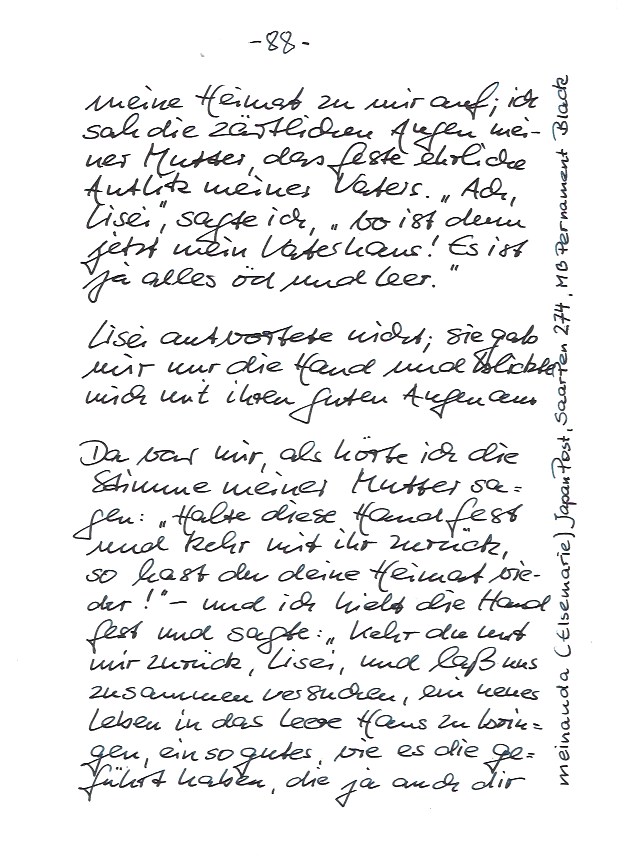 -88-
meine Heimat zu mir auf; ich
sah die zärtlichen Augen mei-
ner Mutter, das feste ehrliche
Antlitz meines Vaters. „Ach,
Lisei", sagte ich, „wo ist denn
jetzt mein Vaterhaus! Es ist
ja alles öd und leer."
Lisei antwortete nicht; sie gab
mir nur die Hand und blickte
mich mit ihren guten Augen an.
Da war mir, als hörte ich die
Stimme meiner Mutter sa=
gen: „Halte diese Hand fest
und kehr mit ihr zurück,
so hast du deine Heimat wie-
der!" – und ich hielt die Hand
fest und sagte: „Kehr du mit
mir zurück, Lisei, und laß uns
zusammen versuchen, ein neues
Leben in das leere Haus zu brin=
gen, ein so gutes, wie es die ge=
führt haben, die ja auch dir
meinanda (Elsemarie) JapanPost, Saarfen 274, MB Pernament Black